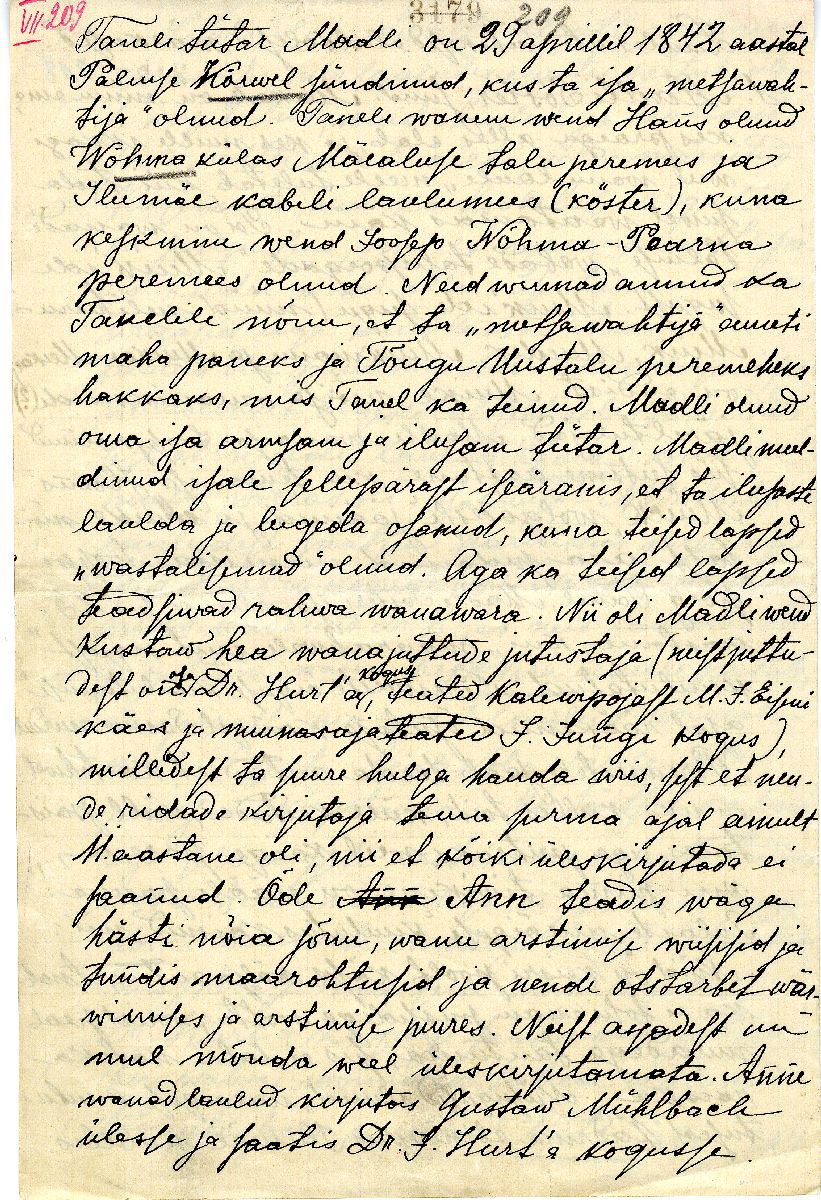 VII. 209
3179 209
Taneli tütar Madli on 29 aprillil 1842 aastal
Palmse Kõrwel sündinud, kus ta isa „metsawah-
tija“ olnud. Taneli wanem wend Hans olnud
Wõhma külas Mäealuse talu peremees ja
Ilumäe kabeli laulumees (köster), kuna
keskmine wend Joosep Wõhma-Paarna
peremees olnud. Need wennad annud ka
Tanelile nõuu, et ta „metsawahtija“ ameti
maha paneks ja Tõugu Uustalu peremeheks
hakkaks, mis Tanel ka teinud. Madli olnud
oma isa armsam ja ilusam tütar. Madli meel-
dinud isale sellepärast iseäranis, et ta ilusaste
laulda ja lugeda osanud, kuna teised lapsed
„wastalisemad“ olnud. Aga ka teised lapsed
teadsiwad rahwa wanawara. Nii oli Madli wend
Kustaw hea wanajuttude jutustaja (neist juttu-
dest on osa Dr. Hurt'a kogus, teated Kalewipojast M. J. Eiseni
käes ja muinasaja teated J. Jungi kogus),
milledest ta suure hulga hauda wiis, sest et nen-
de ridade kirjutaja tema surma ajal ainult
11 aastane oli, nii et kõiki üleskirjutada ei
saanud. Õde Ann Ann teadis wäga
hästi nõia sõnu, wanu arstimise wiisisid ja
tundis maarohtusid ja nende otstarbet wär-
wimises ja arstimise juures. Neist asjadest on
mul mõnda weel üleskirjutamata. Anne
wanad laulud kirjutas Gustaw Mühlbach
ülesse ja saatis Dr. J. Hurt'a kogusse.